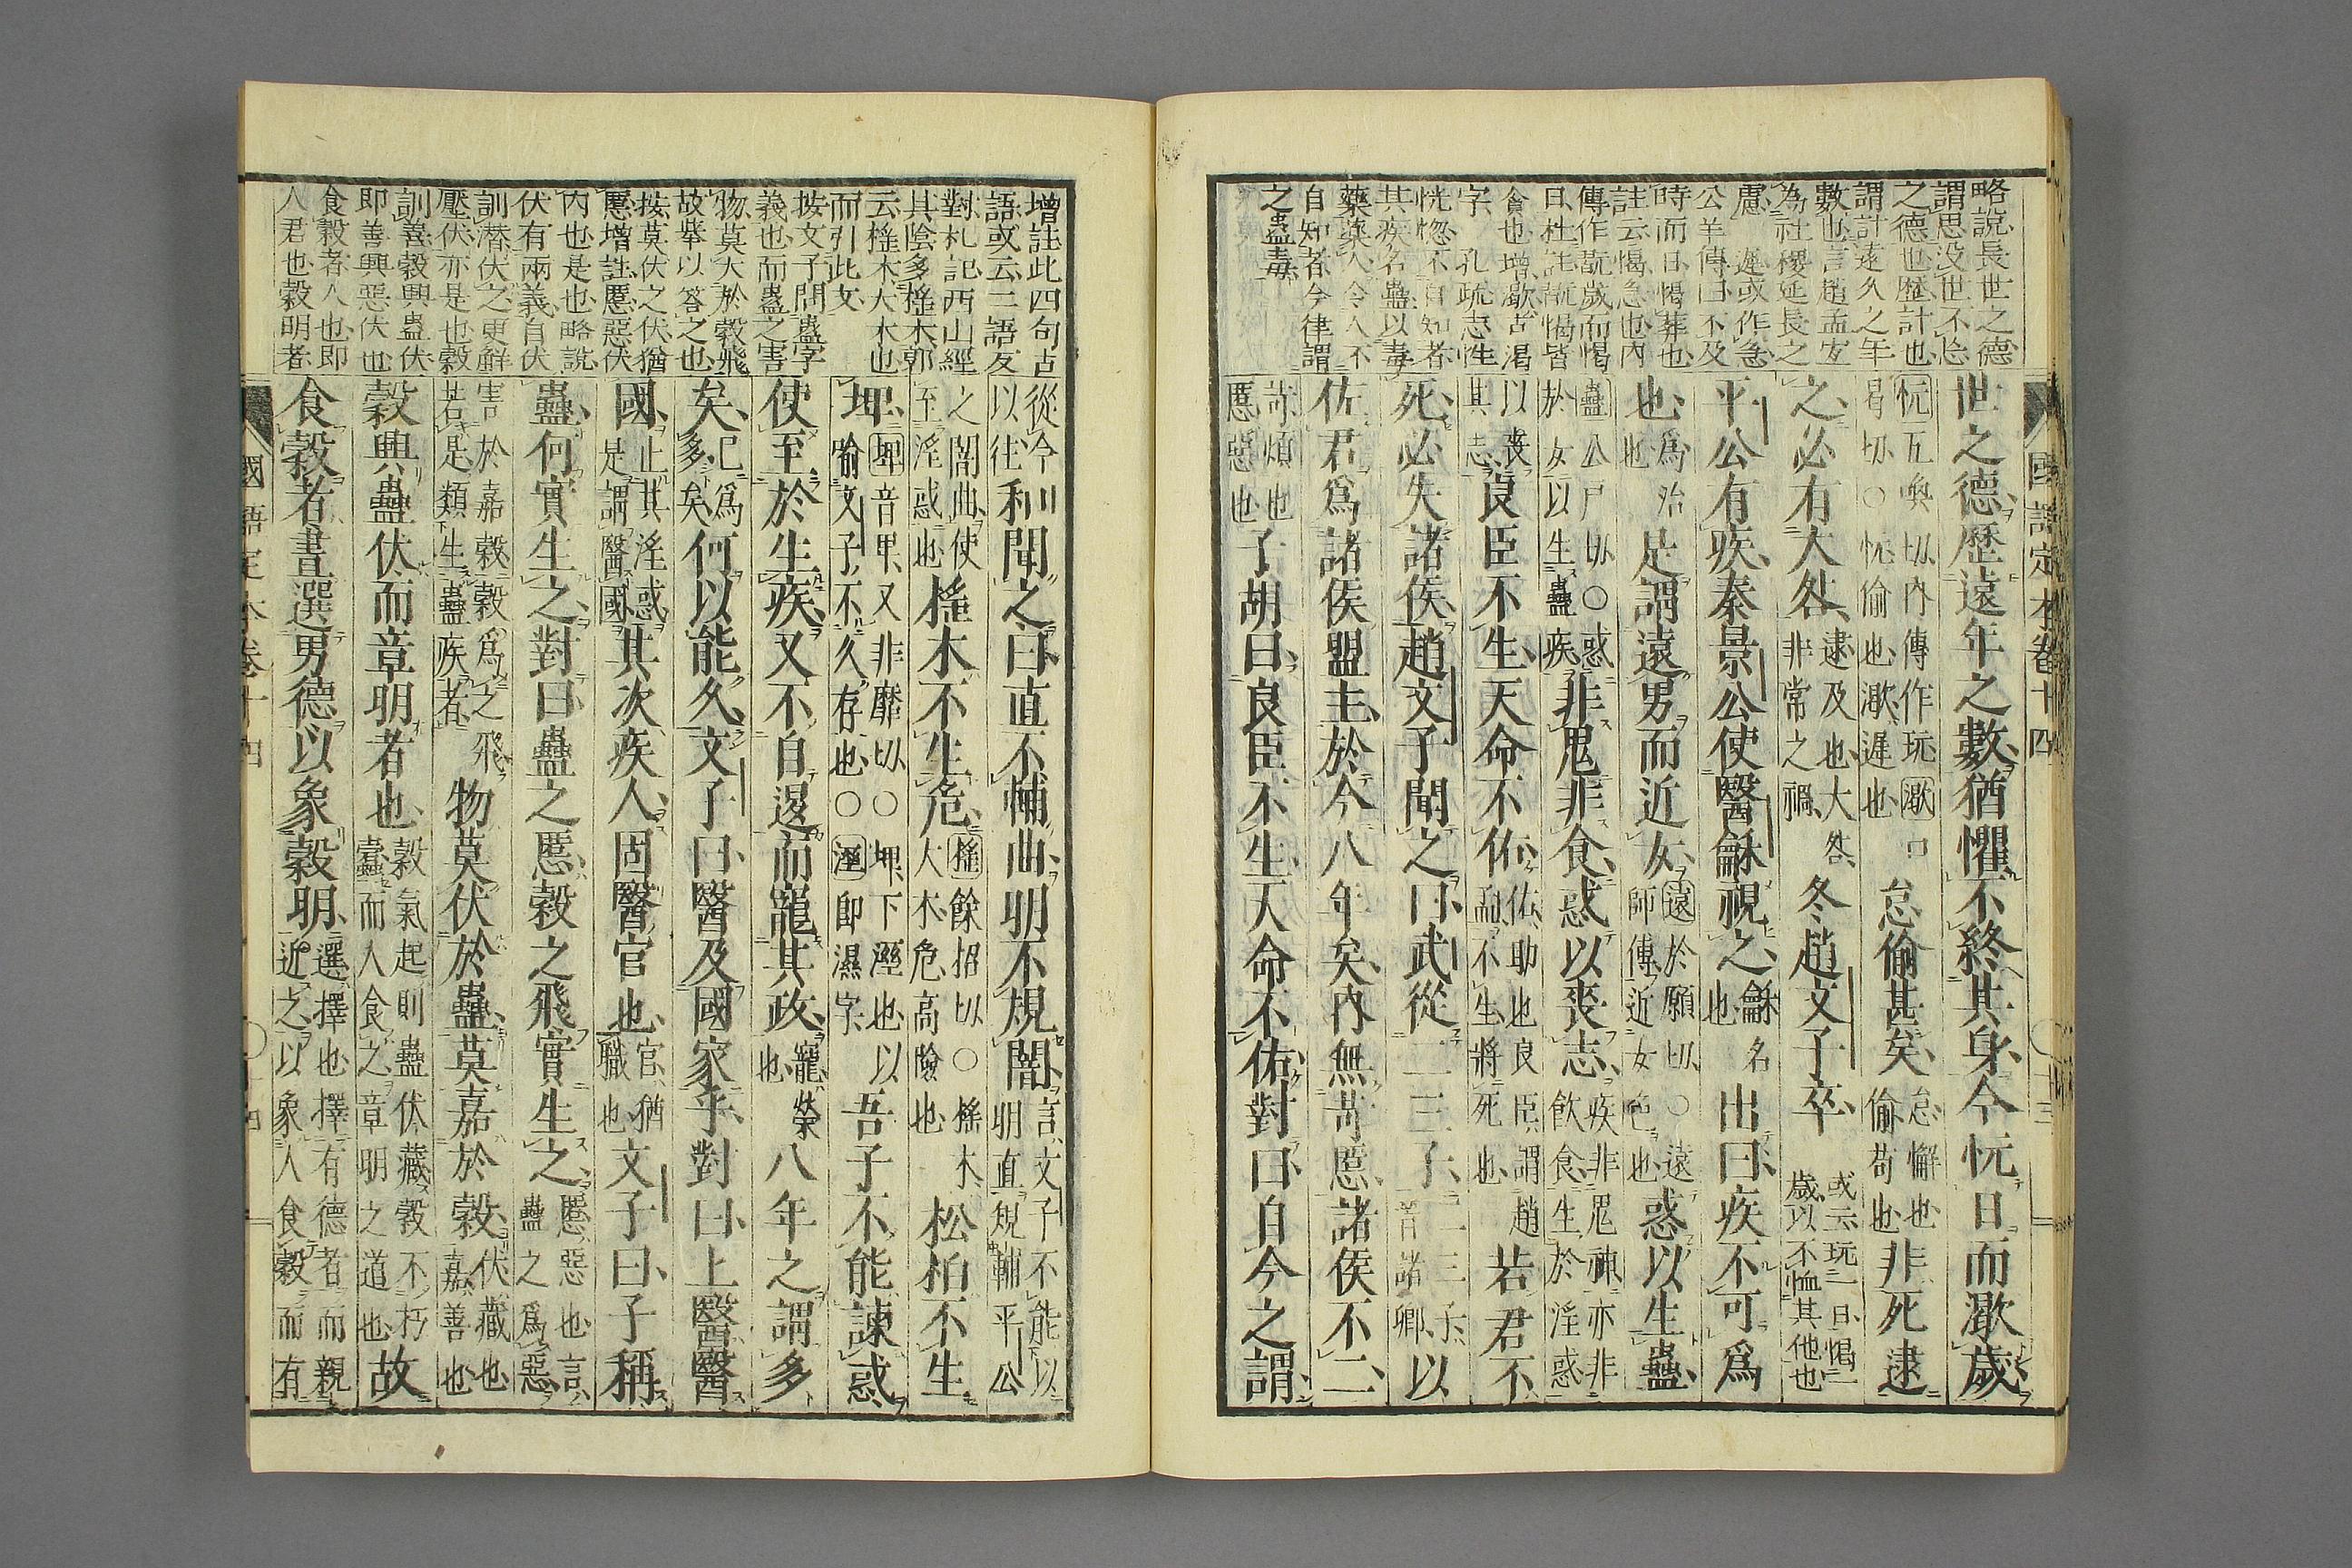 略說長世之德
謂思没世不忘
之德也歷計也
謂計遠久之年
數也言趙孟宜
為社稷延長之
慮 遲或作急
公羊傳曰不及
時而日愒葬也
註云愒急也內
傳作翫歲而愒
日杜註翫愒皆
貪也增歇古渴
字 孔疏志性
恍惚不自知者
其疾名蠱以毒
藥藥人令人不
自知者今律謂
之蠱毒
世之德歷遠年之數猶懼不終其身今忨日而歇歲
忨五喚切內傳作玩歇口
曷切○忨偷也歇遲也
怠偷甚矣
怠懈也
偷苟也
非死逮
之必有大咎
逮及也大咎
非常之禍
冬趙文子卒
或云玩一日愒二
歲以不恤其他也
平公有疾秦景公使醫龢視之
龢名
也
出曰疾不可爲
也
爲治
也
是謂遠男而近女
遠於願切○遠
師傅近女色也
惑以生蠱
蠱公戶切○惑
於女以生蠱疾
非鬼非食惑以喪志
疾非鬼神亦非
飲食生於淫惑
以喪
其志
良臣不生天命不佑
佑助也良臣謂趙
孟不生將死也
若君不
死必失諸侯趙文子聞之曰武從二三子
二三子
晉諸卿
以
佐君爲諸侯盟主於今八年矣內無苛慝諸侯不二
苛煩也
慝惡也
子胡曰良臣不生天命不佑對曰自今之謂
國語定本卷十四
增註此四句古
語或云二語友
對札記西山經
其陰多橒木郭
云橒木大木也
而引此文
按文子問蠱字
義也而蠱之害
物莫大於穀飛
故舉以答之也
按莫伏之伏猶
慝增註慝惡伏
內也是也略說
伏有兩義自伏
訓潛伏之更鮮
壓伏亦是也穀
訓善穀興蠱伏
即善興惡伏也
食穀者人也即
人君也穀明者
從今
以往
和聞之曰直不輔曲明不規闇
言文子不能以
明直規輔平公
之闇曲使
至淫惑也
橒木不生危
橒餘招切○橒木
大木危高險也
松柏不生
埤
埤音卑又非靡切○埤下溼也以
喻文子不久存也○溼卽濕字
吾子不能諫惑
使至於生疾又不自退而寵其政
寵榮
也
八年之謂多
矣
已爲
多矣
何以能久文子曰醫及國家乎對曰上醫醫
國
止其淫惑
是謂醫國
其次疾人固醫官也
官猶
職也
文子曰子稱
蠱何實生之對曰蠱之慝穀之飛實生之
慝惡也言
蠱之爲惡
害於嘉穀穀爲之飛
若是類生蠱疾者
物莫伏於蠱莫嘉於穀
伏藏也
嘉善也
穀興蠱伏而章明者也
穀氣起則蠱伏藏穀不朽
蠹而人食之章明之道也
故
食穀者晝選男德以象穀明
選擇也擇有德者而親
近之以象人食穀而有
國語定本卷十四